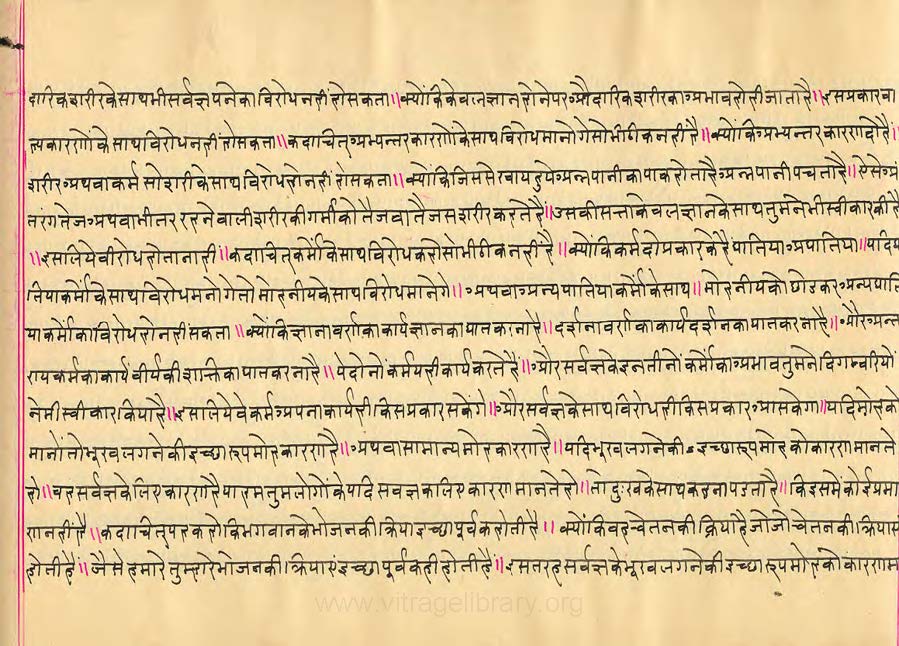 दारिकशरीरकेसाथभीसर्वज्ञपनेकाविरोधनहींहोसकता॥क्योंकिकेवलज्ञानहोनेपरऔदारिकशरीरकाअभावहोहीजाताहै॥इसप्रकारबा
ह्यकारणोंकेसाथविरोधनहींहोसकता॥कदाचित्अभ्यन्तरकारणोंकेसाथविरोधमानोगेसोभीठीकनहींहै॥क्योंकिअभ्यन्तरकारणदोहैं॥
शरीरअथवाकर्मसोशरीरकेसाथविरोधहोनहींहोसकता॥क्योंकिजिससेखायेहुयेअन्नपानीकापाकहोताहैअन्नपानीपचताहै॥ऐसेअं
तरंगतेजअथवाभीतररहनेवालीशरीरकीगर्मीकोतैजवातैजसशरीरकहतेहैं॥उसकीसत्ताकेवलज्ञानकेसाथतुमनेभीस्वीकारकीहै
॥इसलियेवीरोधहोतानाहीं॥कदाचित्कर्मोंकेसाथविरोधकहोसोभीठीकनहींहै॥क्योंकिकर्मदोप्रकारकेहैंघातियाअघातिया॥यदिघ
तियाकर्मोंकेसाथविरोधमनोगेतोमोहनीयकेसाथविरोधमानेगे॥अथवाअन्यघातियाकर्मोंकेसाथ॥मोहनीयकोछोडकरअन्यघाति
याकर्मोंकाविरोधहोनहींसकता॥क्योंकिज्ञानावर्णकाकार्यज्ञानकाघातकरनाहै॥दर्शनावर्णकाकार्यदर्शनकाघातकरनाहै॥औरअन्त
रायकर्मकाकार्यवीर्यकीशक्तिकाघातकरनाहै॥येदोनोंकर्मयहीकार्यकरतेहैं॥औरसर्वज्ञकेइनतीनोंकर्मोंकाअभावतुमनेदिगम्बरियों
नेभीस्वीकारकियाहै॥इसलियेवेकर्मअपनाकार्यहीकिसप्रकारसकेंगे॥औरसर्वज्ञकेसाथविरोधहीकिसप्रकारआसकेगा॥यदिमोहको
मानोंतोभूखलगनेकीइच्छारूपमोहकारणहै॥अथवासामान्यमोहकारणहै॥यदिभूखलगनेकीइच्छारूपमोहकोकारणमानते
हो॥वहसर्वज्ञकेलिएकारणहैयाहमतुमलोगोंकेयदिसवज्ञकेलिएकारणमानतेहो॥तोदुःखकेसाथकहनापडताहै॥किइसमेंकोईप्रमा
णनहींहै॥कदाचित्यहकहोकिभगवानकेभोजनकीक्रियाइच्छापूर्वकहोतीहै॥क्योंकिवहचेतनकीक्रियाहैजोजोचेतनकीक्रियायें
होतीहैं॥जैसेहमारेतुम्हारेभोजनकीक्रियाएंइच्छापूर्वकहीहोतीहैं॥इसतरहसर्वज्ञकेभूखलगनेकीइच्छारूपमोहकोकारणम
www.vitragelibrary.org